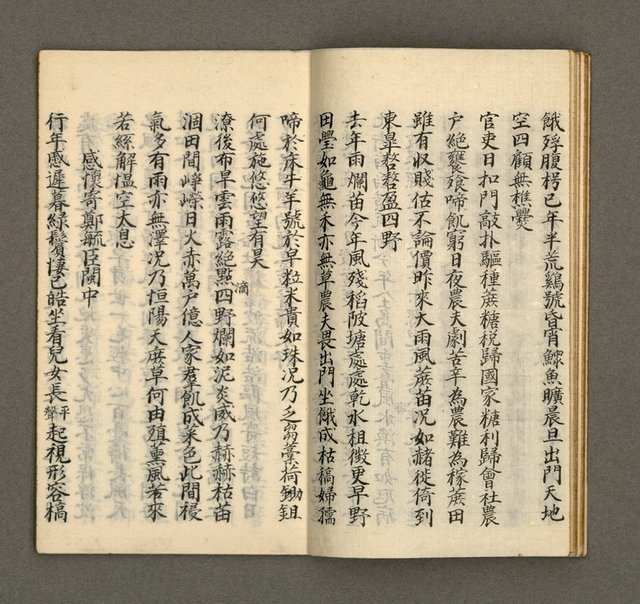 餓殍腹枵已年半荒鷄號昏宵鰥魚曠晨旦出門天地
空四顧無樵爨
官吏日扣門敲扑驅種蔗糖稅歸國家糖利歸會社農
戶絕饔飧啼飢窮日夜農夫劇苦辛為農難為稼蔗田
雖有收賤估不論價昨來大雨風蔗苗況如赭徙倚到
東皋嗸嗸盈四野
去年雨爛苗今年風殘稻陂塘處處乾水租徵更早野
田疊如龜無禾亦無草農夫畏出門坐餓成枯槁婦孺
啼於床牛羊號於皁粒米貴如珠況乃乏芻藁荷鋤鉏
何處施悠悠望有昊
潦後布旱雲雨露絕點滴四野爛如泥炎威乃赫赫枯苗
涸田間崢嶸日火赤萬戶億人家羣飢成菜色此間祲
氣多有雨亦無澤況乃恒陽天庶草何由殖薰風若來
若絲解慍空太息
感懷寄鄭毓臣閩中
行年感遲暮綠鬢悽已皓坐看兒女長平聲起視形容槁